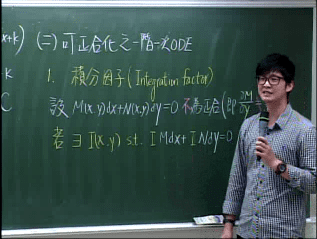 x+k) (二) 可正合化之一階一次ODE
k 1. 積分因子 (Integration factor)
C 設 M(x,y)dx+N(x,y)dy=0 不為正合 (即 ∂M/∂y
若 ∃ I(x,y) s.t. I Mdx + I Ndy=0